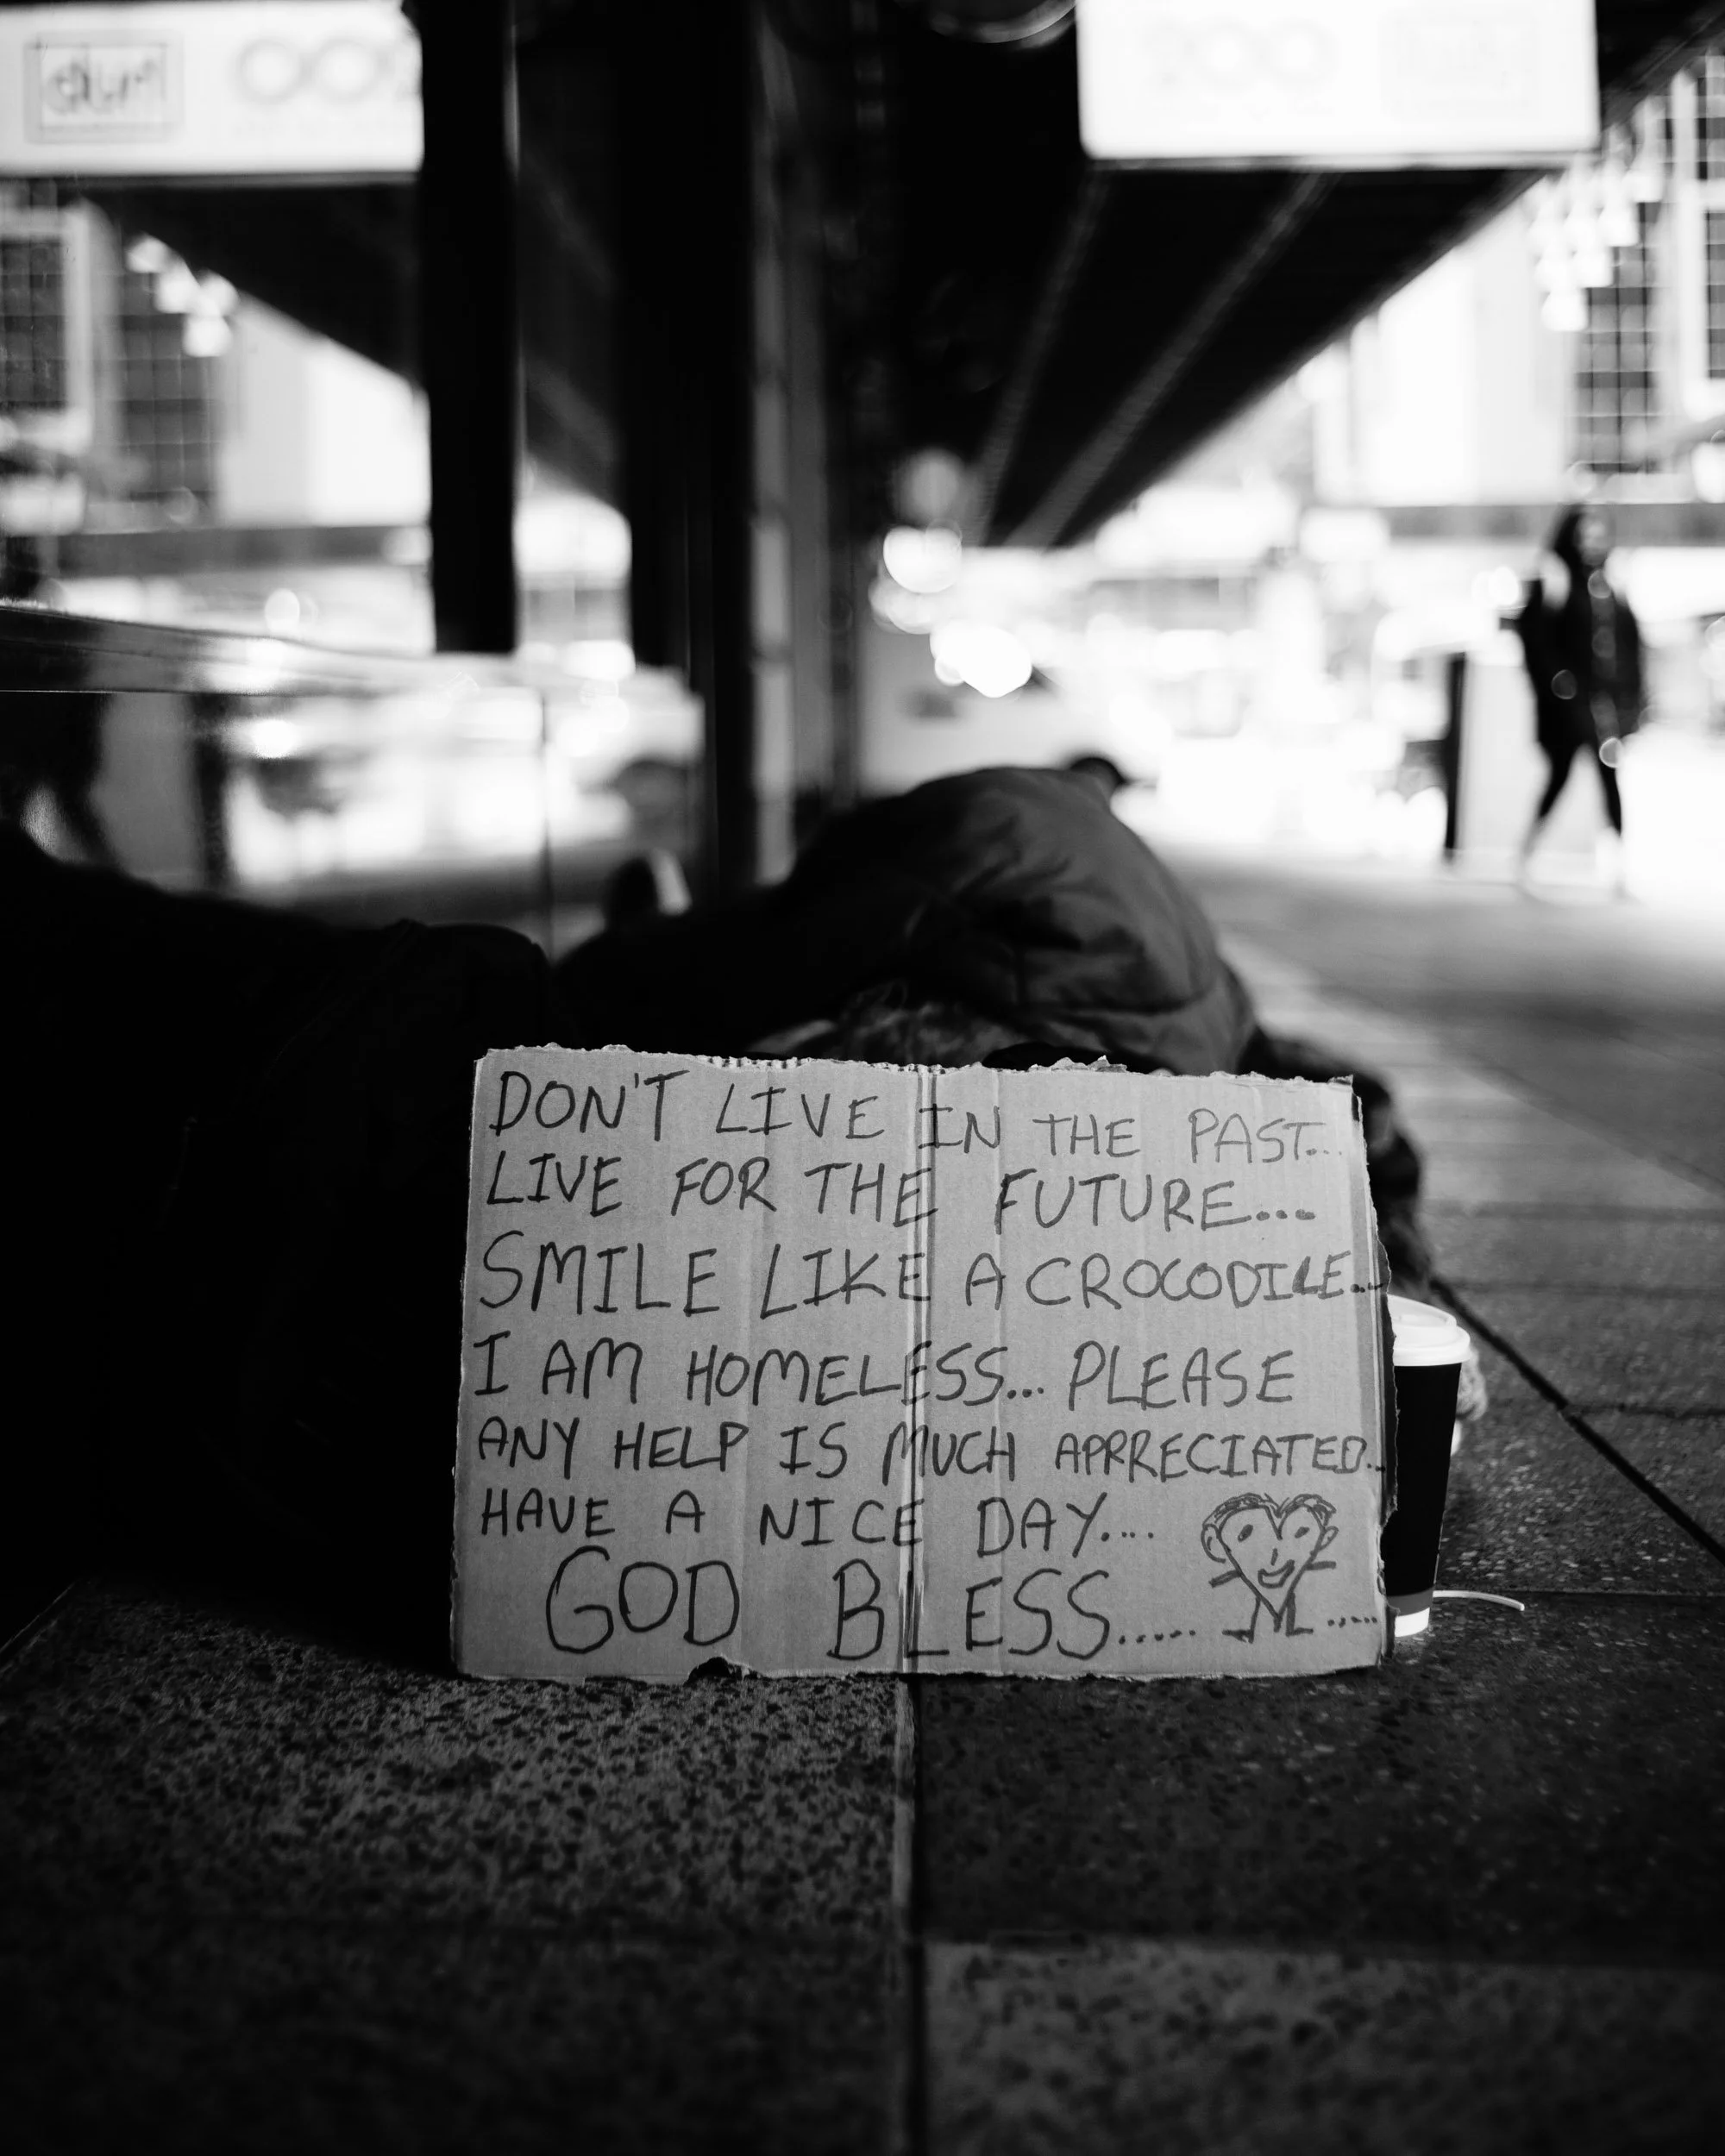 DON'T LIVE IN THE PAST...
LIVE FOR THE FUTURE...
SMILE LIKE A CROCODILE...
I AM HOMELESS... PLEASE
ANY HELP IS MUCH APRRECIATED..
HAVE A NICE DAY....
GOD BLESS..... .....